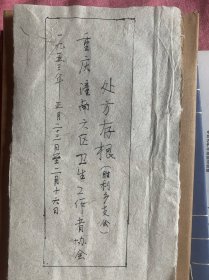 处方存根（胜利乡支会）
重庆潼南六区卫生工作者协会
一九五三年 五月二三日至二月十六日